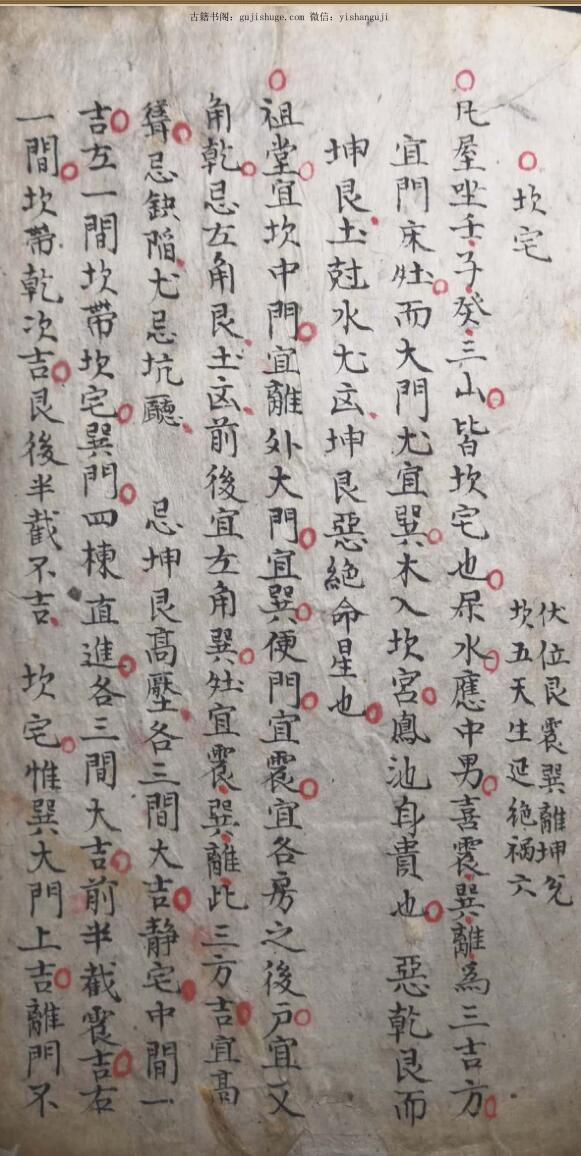 古籍书阁：gujishuge.com 微信：yishanguji
坎宅
伏位艮震巽離坤兌
坎五天生延絕禍六
凡屋坐壬子癸三山皆坎宅也屎水應中男喜震巽離為三吉方
宜門床灶而大門尤宜巽木入坎宮鳳池身貴也 惡乾艮而
坤艮土尅水尤凶坤艮惡絕命星也
祖堂宜坎中門宜離外大門宜巽便門宜震宜各房之後戶宜又
角乾忌左角艮土凶前後宜左角巽灶宜震巽離此三方吉宜高
聳忌缺陷尤忌坑廳 忌坤艮高壓各三間大吉靜宅中間一
吉左一間坎帶坎宅巽門四棟直進各三間大吉前半截震吉右
一間坎帶乾次吉艮後半截不吉 坎宅惟巽大門上吉離門不